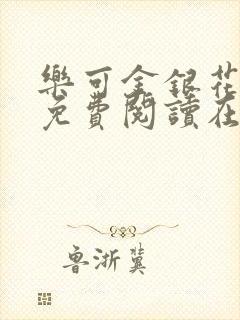 樂可金銀花
免費閱讀在
魯浙冀